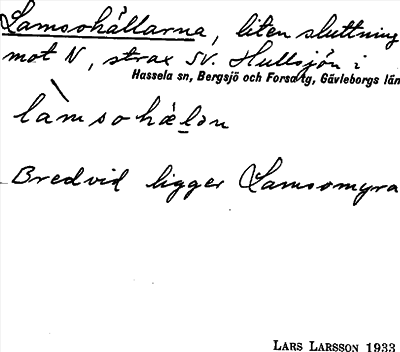 Lamsohällarna, liten sluttning
mot N, strax SV. Hullsjön i
Hassela sn, Bergsjö och Forsa tg, Gävleborgs län
làmsohä́lọn
Bredvid ligger Lamsomyra
LARS LARSSON 1933